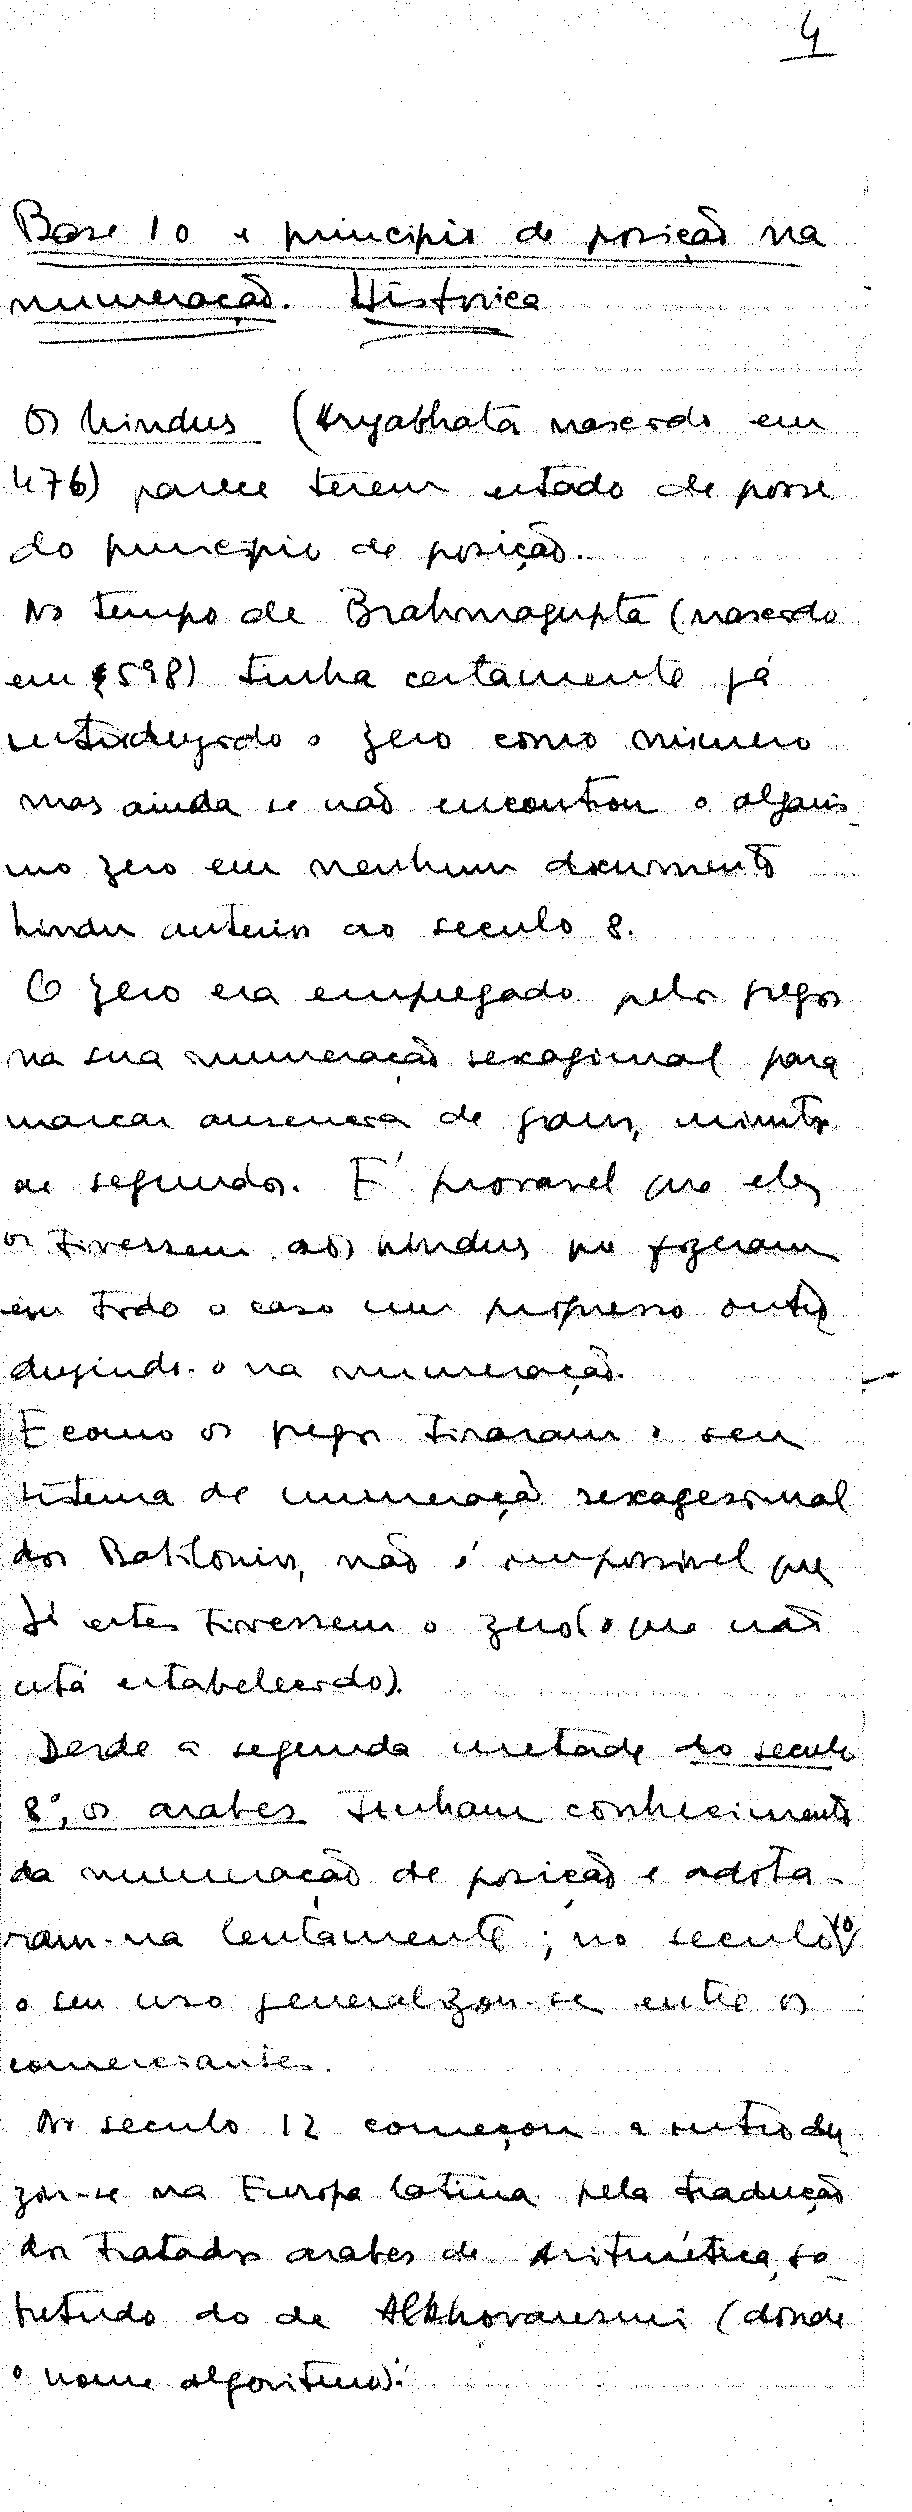 4
Base 10 e principio de posição na
numeração. Historica
Os hindus (Aryabhata nascido em
476) parece terem estado de posse
do principio de posição.
No tempo de Brahmagupta (nascido
em 598) tinha certamente já
introduzido o zero como número
mas ainda se não encontrou o algaris-
mo zero em nenhum documento
hindu anterior ao seculo 8.
O zero era empregado pelos gregos
na sua numeração sexagimal para
marcar ausencia de graus, minutos
ou segundos. É provavel que eles
os tivessem aos hindus que fizeram
em todo o caso um progresso intro
duzindo-o na numeração.
E como os gregos tiraram o seu
sistema de numeração sexagesimal
dos Babilonios, não é impossivel que
já estes tivessem o zero (o que não
está estabelecido).
Desde a segunda metade do seculo
8º, os arabes tinham conhecimento
da numeração de posição e adota-
ram-na lentamente; no seculo 10
o seu uso generalizou-se entre os
comerciantes.
No seculo 12 começou a introdu
zir-se na Europa latina pela tradução
dos tratados arabes de aritmética, so-
bretudo do de Alkhovaresmi (donde
o nome algoritmo).